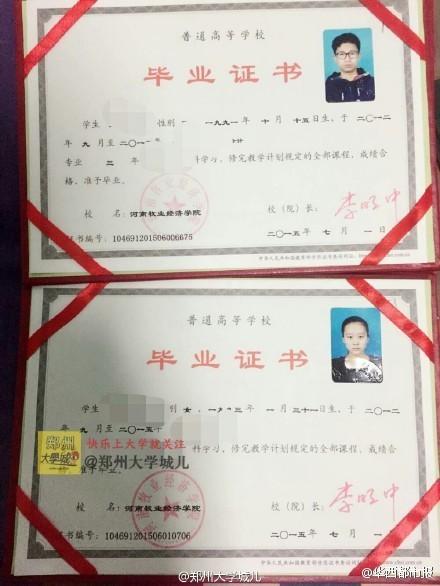 普通高等学校
毕业证书
学生 性别 一九九一年 十月 十五日生，于二〇一二
年 九月至二〇一
专业 三 年 科学习，修完教学计划规定的全部课程，成绩合
格，准予毕业。
校 名：河南牧业经济学院 校（院）长：李明中
证书编号：104691201506006675 二〇一五年 七月 一日
普通高等学校
毕业证书
学生 别 女， 三年 一月 三十一日生，于二〇一二
年 九月至二〇一五年
郑州
大学城
快乐上大学就关注
@郑州大学城儿
科学习，修完教学计划规定的全部课程，成绩合
准予毕业。
校 名：河南牧业经济学院 校（院）长：李明中
证书编号：104691201506010706 二〇一五年 七月 一
@郑州大学城儿
@华西都市报